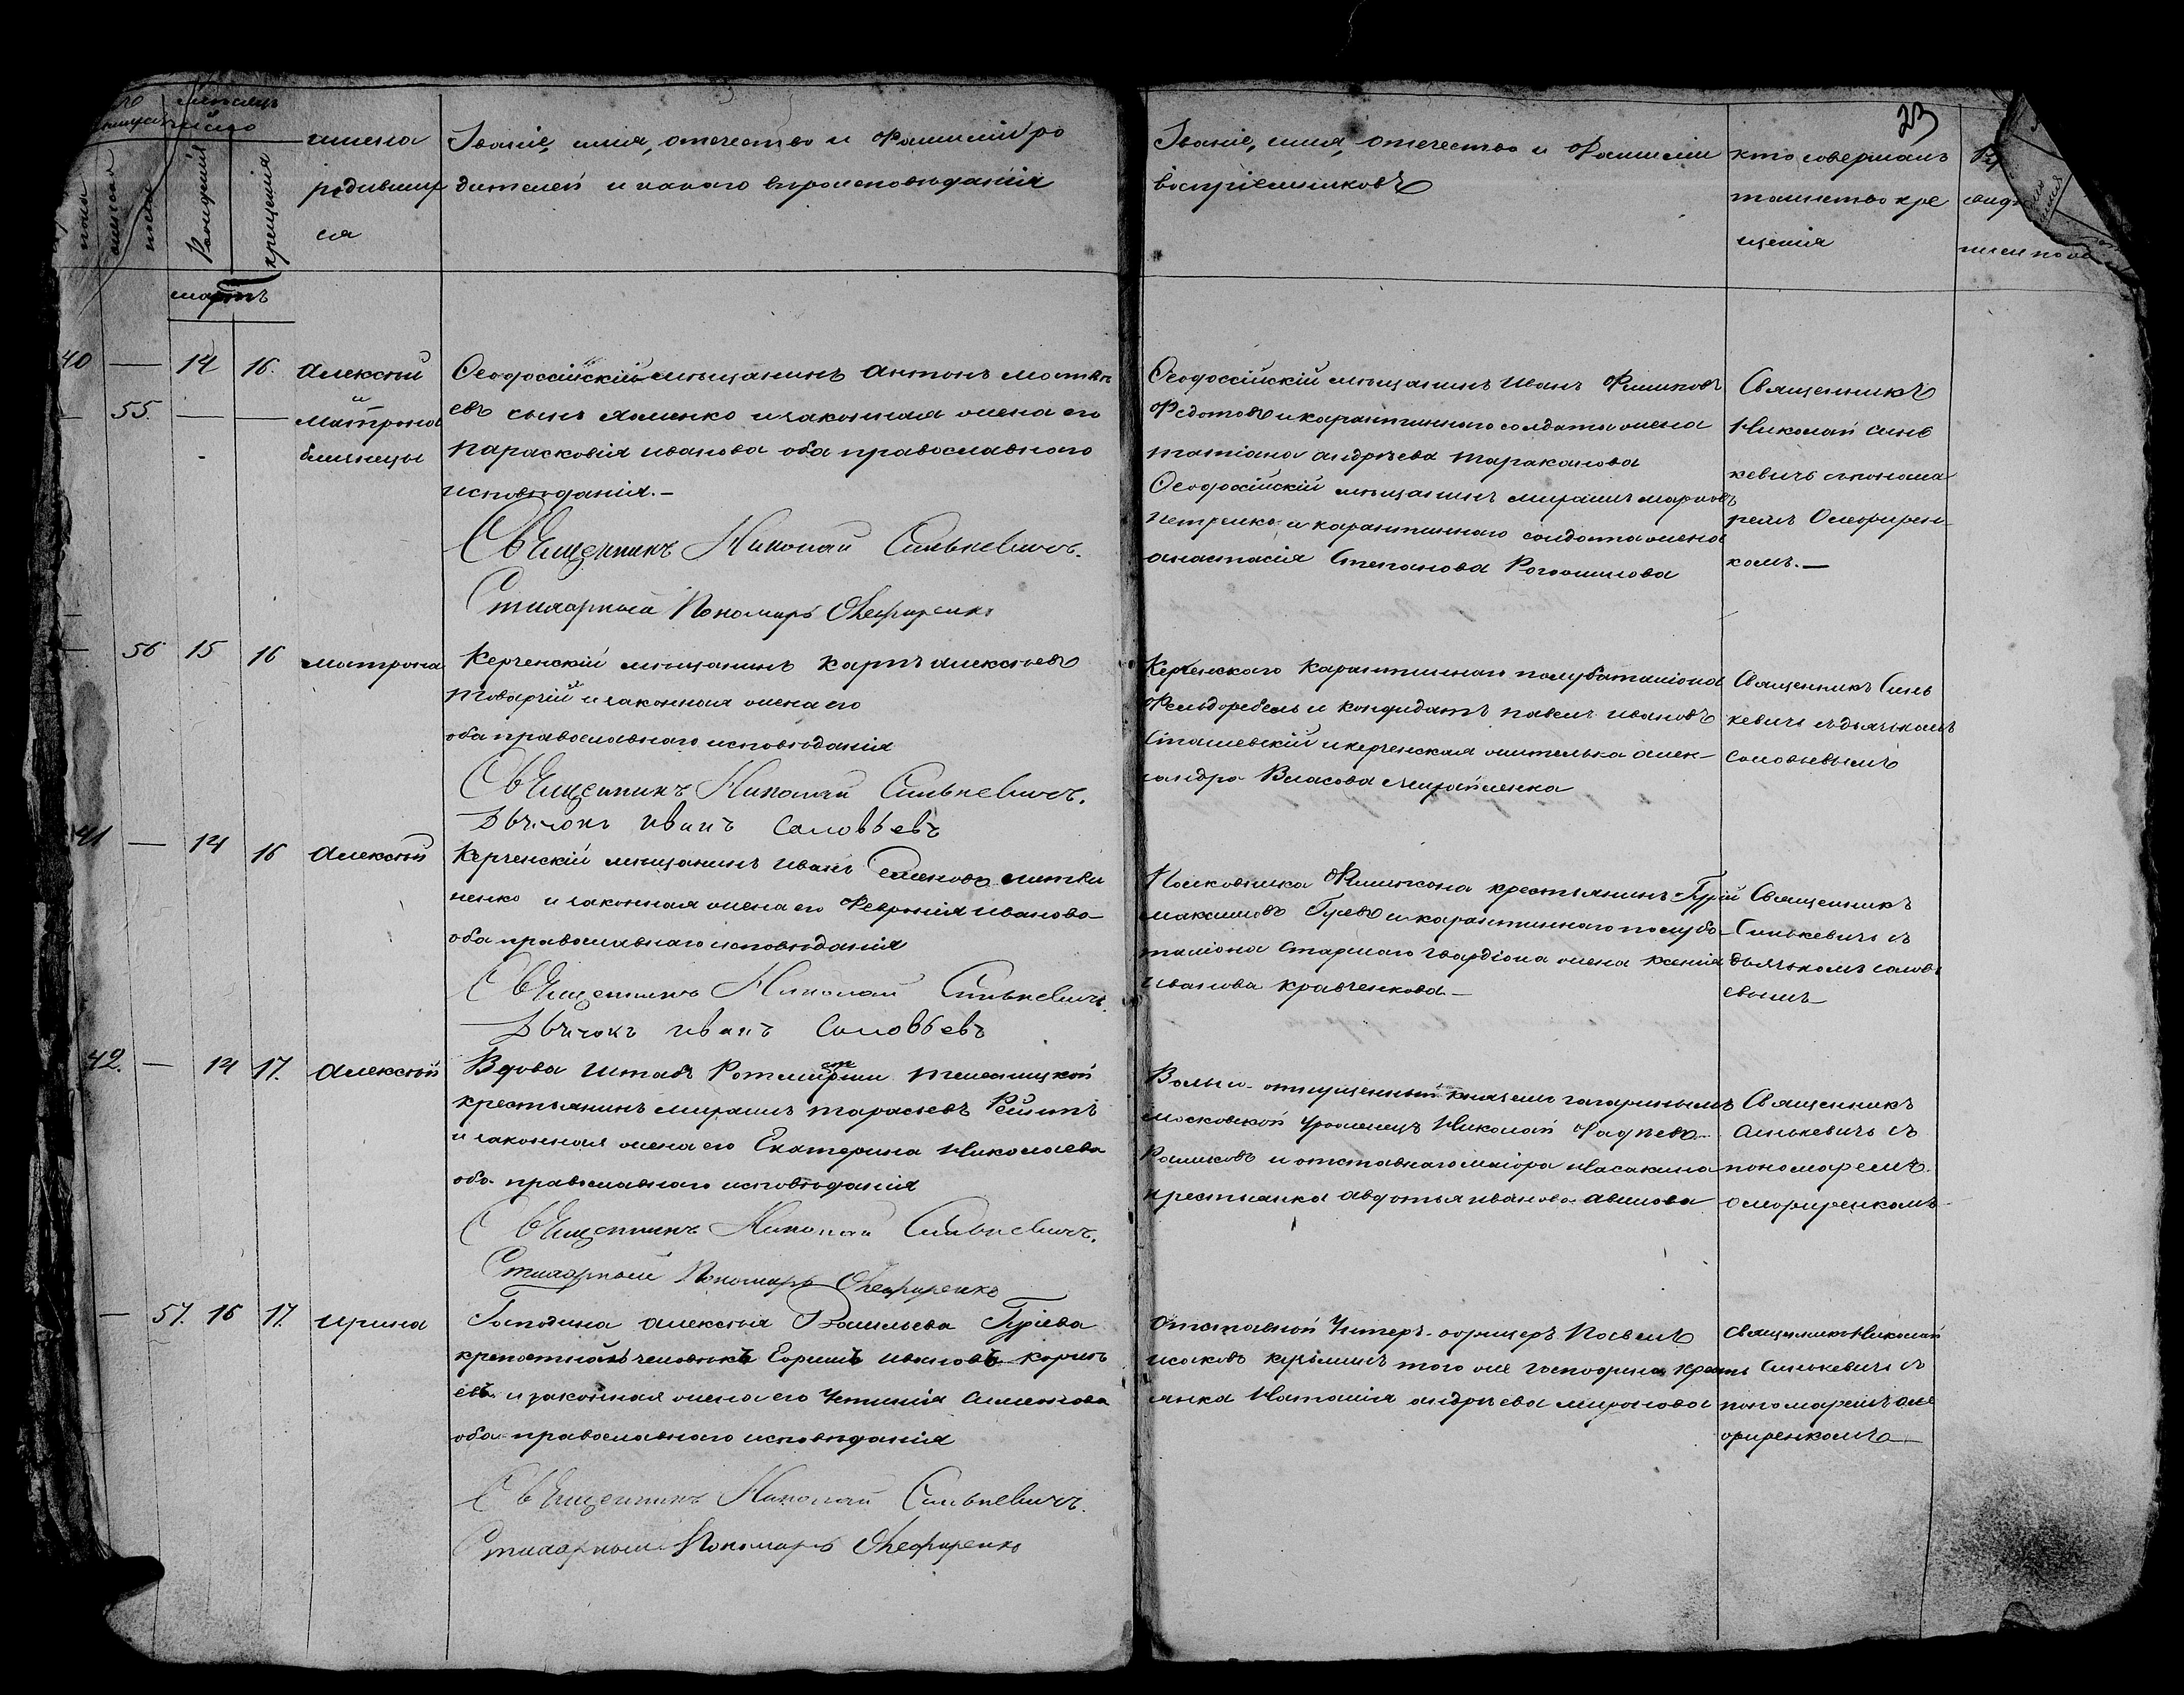 мѣсяцъ
число
мужеска
женска
пола
Рожденія
крещенія
имена
родивших
ся
Званіе, имя, отечество и Фамиліи ро
дителей и какого вѣроисповѣданія
Званіе, имя, отечество и Фамиліи
воспріемниковъ
кто совершалъ
таинство кре
щенія
23
мартъ
40 — 14 16. Алексѣй
55. — — и
Матрона
близнецы
Ѳеодоссійскій мѣщанинъ Антонъ Матвѣ
евъ сынъ Яленко и законная жена его
Парасковія Иванова оба православнаго
исповѣданія. —
Священникъ Николай Синькевичъ.
Стихарный Пономарь Олефиренко
Ѳеодоссійскій мѣщанинъ Иванъ Филиповъ
Федотовъ и карантиннаго солдата жена
Татіана Андрѣева Тараканова
Ѳеодосійскій мѣщанинъ Миранъ Марковъ
Петренко и карантиннаго солдата жена
Анастасія Степанова Рогожилова
Священникъ
Николай Синь
кевичъ спонома
ремъ Олефирен-
комъ. —
— 56 15 16 Матрона
Керченскій мѣщанинъ Карпъ Алексѣевъ
Товарчій и законная жена его
оба православнаго исповѣданія
Священникъ Николай Синькевичъ.
Дьячокъ Иванъ Соловьевъ
Керченскаго Карантиннаго полубаталіона
Фельдфебель и кондидатъ Павелъ Ивановъ
Сташевскій и керченская жителька Алек-
сандра Власова Михайленка
Священникъ Синь
кевичъ съдьячкомъ
Соловьевымъ
41 — 14 16 Алексѣй
Керченскій мѣщанинъ Иванъ Семеновъ Литви
ненко и законная жена его Февронія Иванова
оба православнаго исповѣданія
Священникъ Николай Синькевичъ.
Дьячокъ Иванъ Соловьевъ
Полковника Филипсона крестьянинъ Гурій
Максимовъ Гуевъ и карантиннаго полуба-
таліона старшаго гвардіона жена Ксенія
Иванова Кравченкова —
Священникъ
Синькевичъ съ
дьячкомъ Солов
евымъ
42. — 14 17. Алексѣй
Вдова Штабъ Ротмистрши
крестьянинъ Миранъ Тарасьевъ
и законная жена его Екатерина Николаева
оба православнаго исповѣданія
Священникъ Николай Синькевичъ.
Стихарный Пономарь Олефиренко
Вольно-отпущенный княземъ Гагаринымъ
московской уроженецъ Николай Фадѣевъ
и отставнаго маіора Насакина
крестьянка Авдотья Иванова Авилова
Священникъ
Синькевичъ съ
пономаремъ
Олефиренкомъ
— 57. 16 17. Ирина
Господина Алексѣя Васильева Гуріева
крепостной человѣкъ Ефимъ Ивановъ Корнѣ
евъ и законная жена его Устинія Симонова
оба православнаго исповѣданія
Священникъ Николай Синькевичъ.
Стихарный Пономарь Олефиренко
Отставной Унтеръ-офицеръ Павелъ
Исаковъ того же господина крестъ
янка Наталія Андрѣева Миронова
Священникъ Николай
Синькевичъ съ
пономаремъ Оле
фиренкомъ —